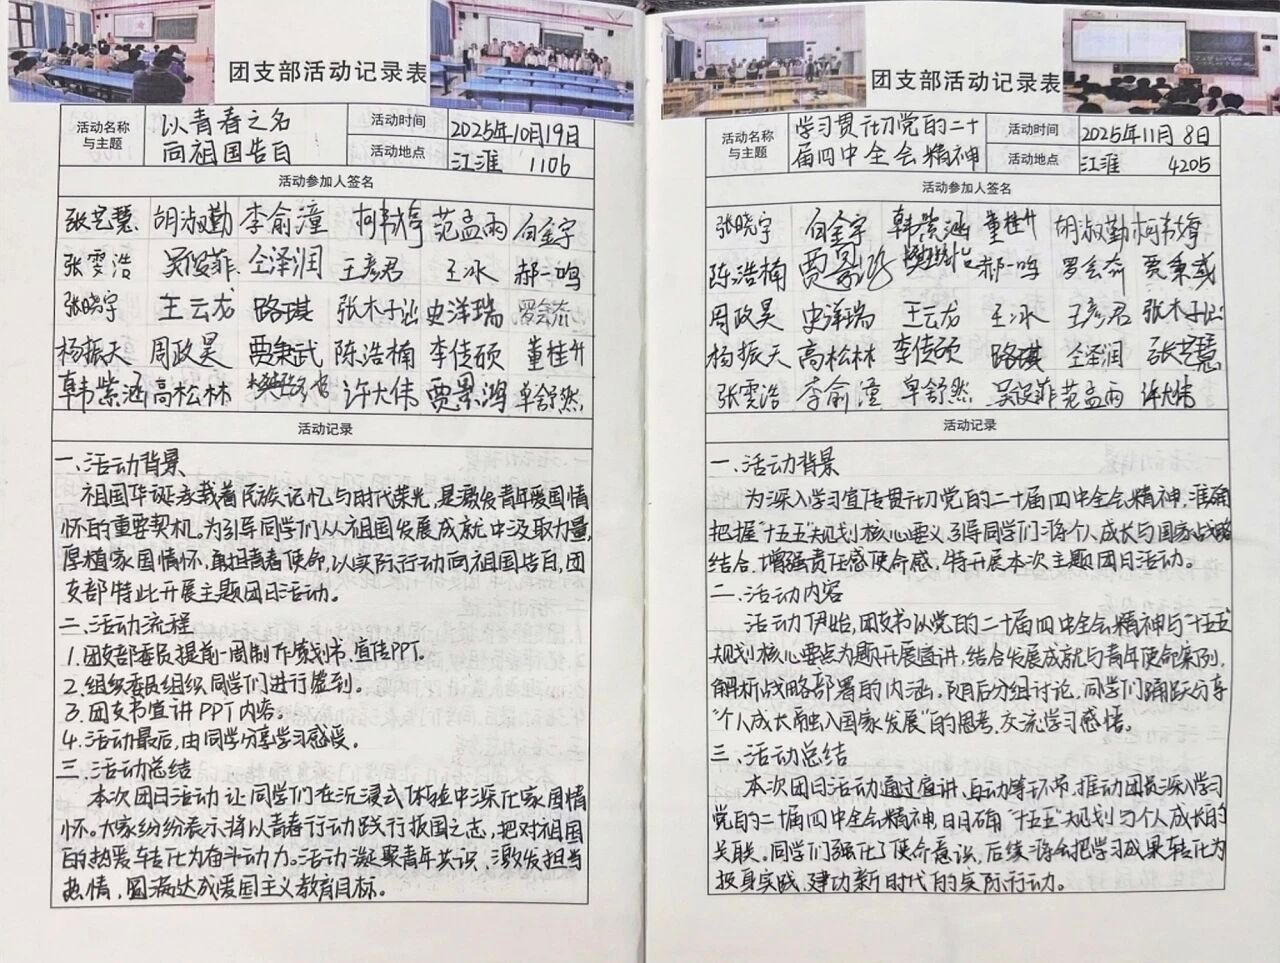 团支部活动记录表
活动名称与主题
以青春之名
向祖国告白
活动时间
2025年10月19日
活动地点
江淮 1106
活动参加人签名
张艺慧 胡淑勤 李俞潼 柯韩婷 范孟雨 白金宇
张雯浩 吴俊菲 仝泽润 王彦君 王冰 郝一鸣
张晓宇 王云龙 路琪 史洋瑞 罗会奇
杨振天 周政昊 贾秉武 陈浩楠 李佳硕 董桂升
韩紫涵 高松林 许大伟 贾景鸿 单舒然
活动记录
一、活动背景
祖国华诞承载着民族记忆与时代荣光,是激发青年爱国情
怀的重要契机。为引导同学们从祖国发展成就中汲取力量,
厚植家国情怀,勇担青春使命,以实际行动向祖国告白,团
支部特此开展主题团日活动。
二、活动流程
1.团支部委员提前一周制作策划书、宣传PPT。
2.组织委员组织同学们进行签到。
3.团支书宣讲PPT内容。
4.活动最后,由同学分享学习感悟。
三、活动总结
本次团日活动让同学们在沉浸式体验中深化家国情
怀。大家纷纷表示将以青春行动践行报国之志,把对祖国
的热爱转化为奋斗动力。活动凝聚青年共识,激发担当
热情,圆满达成爱国主义教育目标。
团支部活动记录表
活动名称与主题
学习贯彻党的二十
届四中全会精神
活动时间
2025年11月8日
活动地点
江淮 4205
活动参加人签名
张晓宇 白金宇 韩紫涵 董桂升 胡淑勤 柯韩婷
陈浩楠 贾景鸿 郝一鸣 罗会奇 贾秉武
周政昊 史洋瑞 王云龙 王冰 王彦君
杨振天 高松林 李佳硕 路琪 仝泽润 张艺慧
张雯浩 李俞潼 单舒然 吴俊菲 范孟雨 许大伟
活动记录
一、活动背景
为深入学习宣传贯彻党的二十届四中全会精神,准确
把握“十五五”规划核心要义,引导同学们将个人成长与国家战略
结合,增强责任感使命感,特开展本次主题团日活动。
二、活动内容
活动伊始,团支书以党的二十届四中全会精神与“十五五”
规划核心要点为题开展宣讲,结合发展成就与青年使命案例,
解析战略部署的内涵。随后分组讨论,同学们踊跃分享
“个人成长融入国家发展”的思考,交流学习感悟。
三、活动总结
本次团日活动通过宣讲、互动等环节,推动团员深入学习
党的二十届四中全会精神,明确“十五五”规划与个人成长的
关联。同学们强化了使命意识,后续将会把学习成果转化为
投身实践、建功新时代的实际行动。